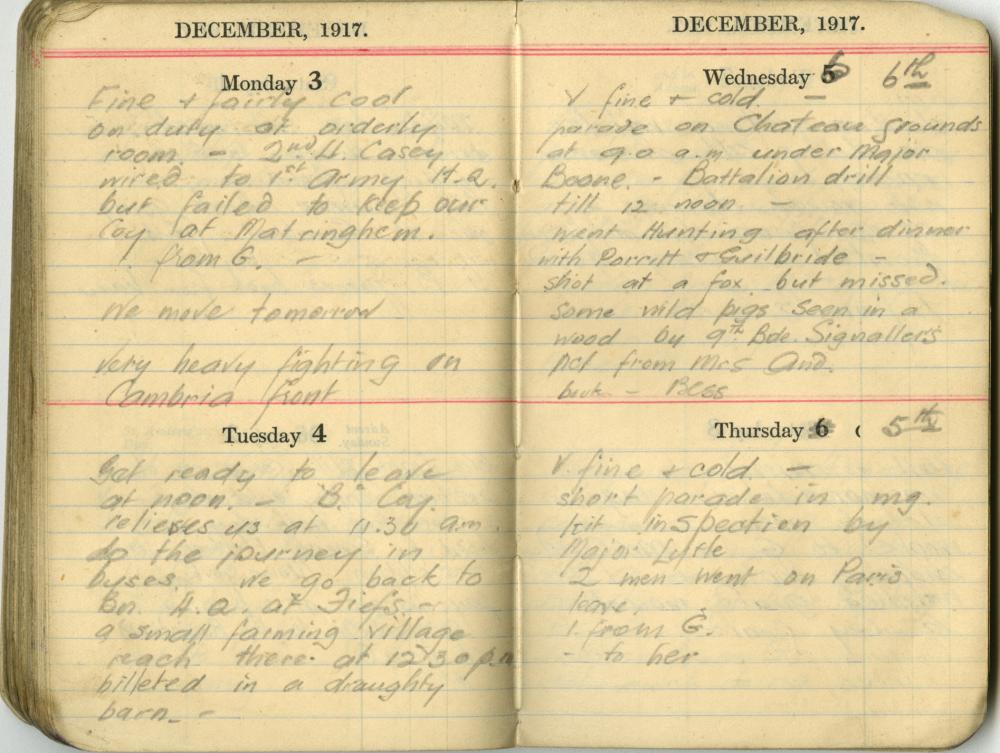 DECEMBER, 1917.
Monday 3
Fine + fairly cool
on duty at orderly
room. - 2nd Lt. Casey
wired to 1st Army H.Q.
but failed to keep our
Coy at Matringhem.
from G. -
We move tomorrow
very heavy fighting on
Cambria front
Tuesday 4
Get ready to leave
at noon. - B. Coy.
relieves us at 11.30 a.m.
do the journey in
buses. we go back to
Bn. H.Q. at Fiefs. -
a small farming village
reach there at 12.30 p.m
billeted in a draughty
barn. -
DECEMBER, 1917.
Wednesday 6 6th
V fine + cold. -
parade on Chateau grounds
at 9.0 a.m under Major
Boone. - Battalion drill
till 12 noon -
went Hunting after dinner
with Porritt + Guilbride -
shot at a fox but missed.
some wild pigs seen in a
wood by 9th Bde. Signallers
pct from Mrs And.
- Bess
Thursday 6 5th
V. fine + cold. -
short parade in mg.
kit inspection by
Major Lytle
2 men went on Paris
leave.
1. from G.
- to her